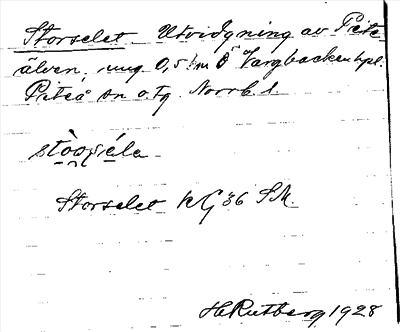 Storselet. Utvidgning av Pite
älven, ung. 0,5 km Ö Vargbacken hpl.
Piteå sn o. tg. Norrb. l.
Storselet KG 36 SM.
H Rutberg 1928